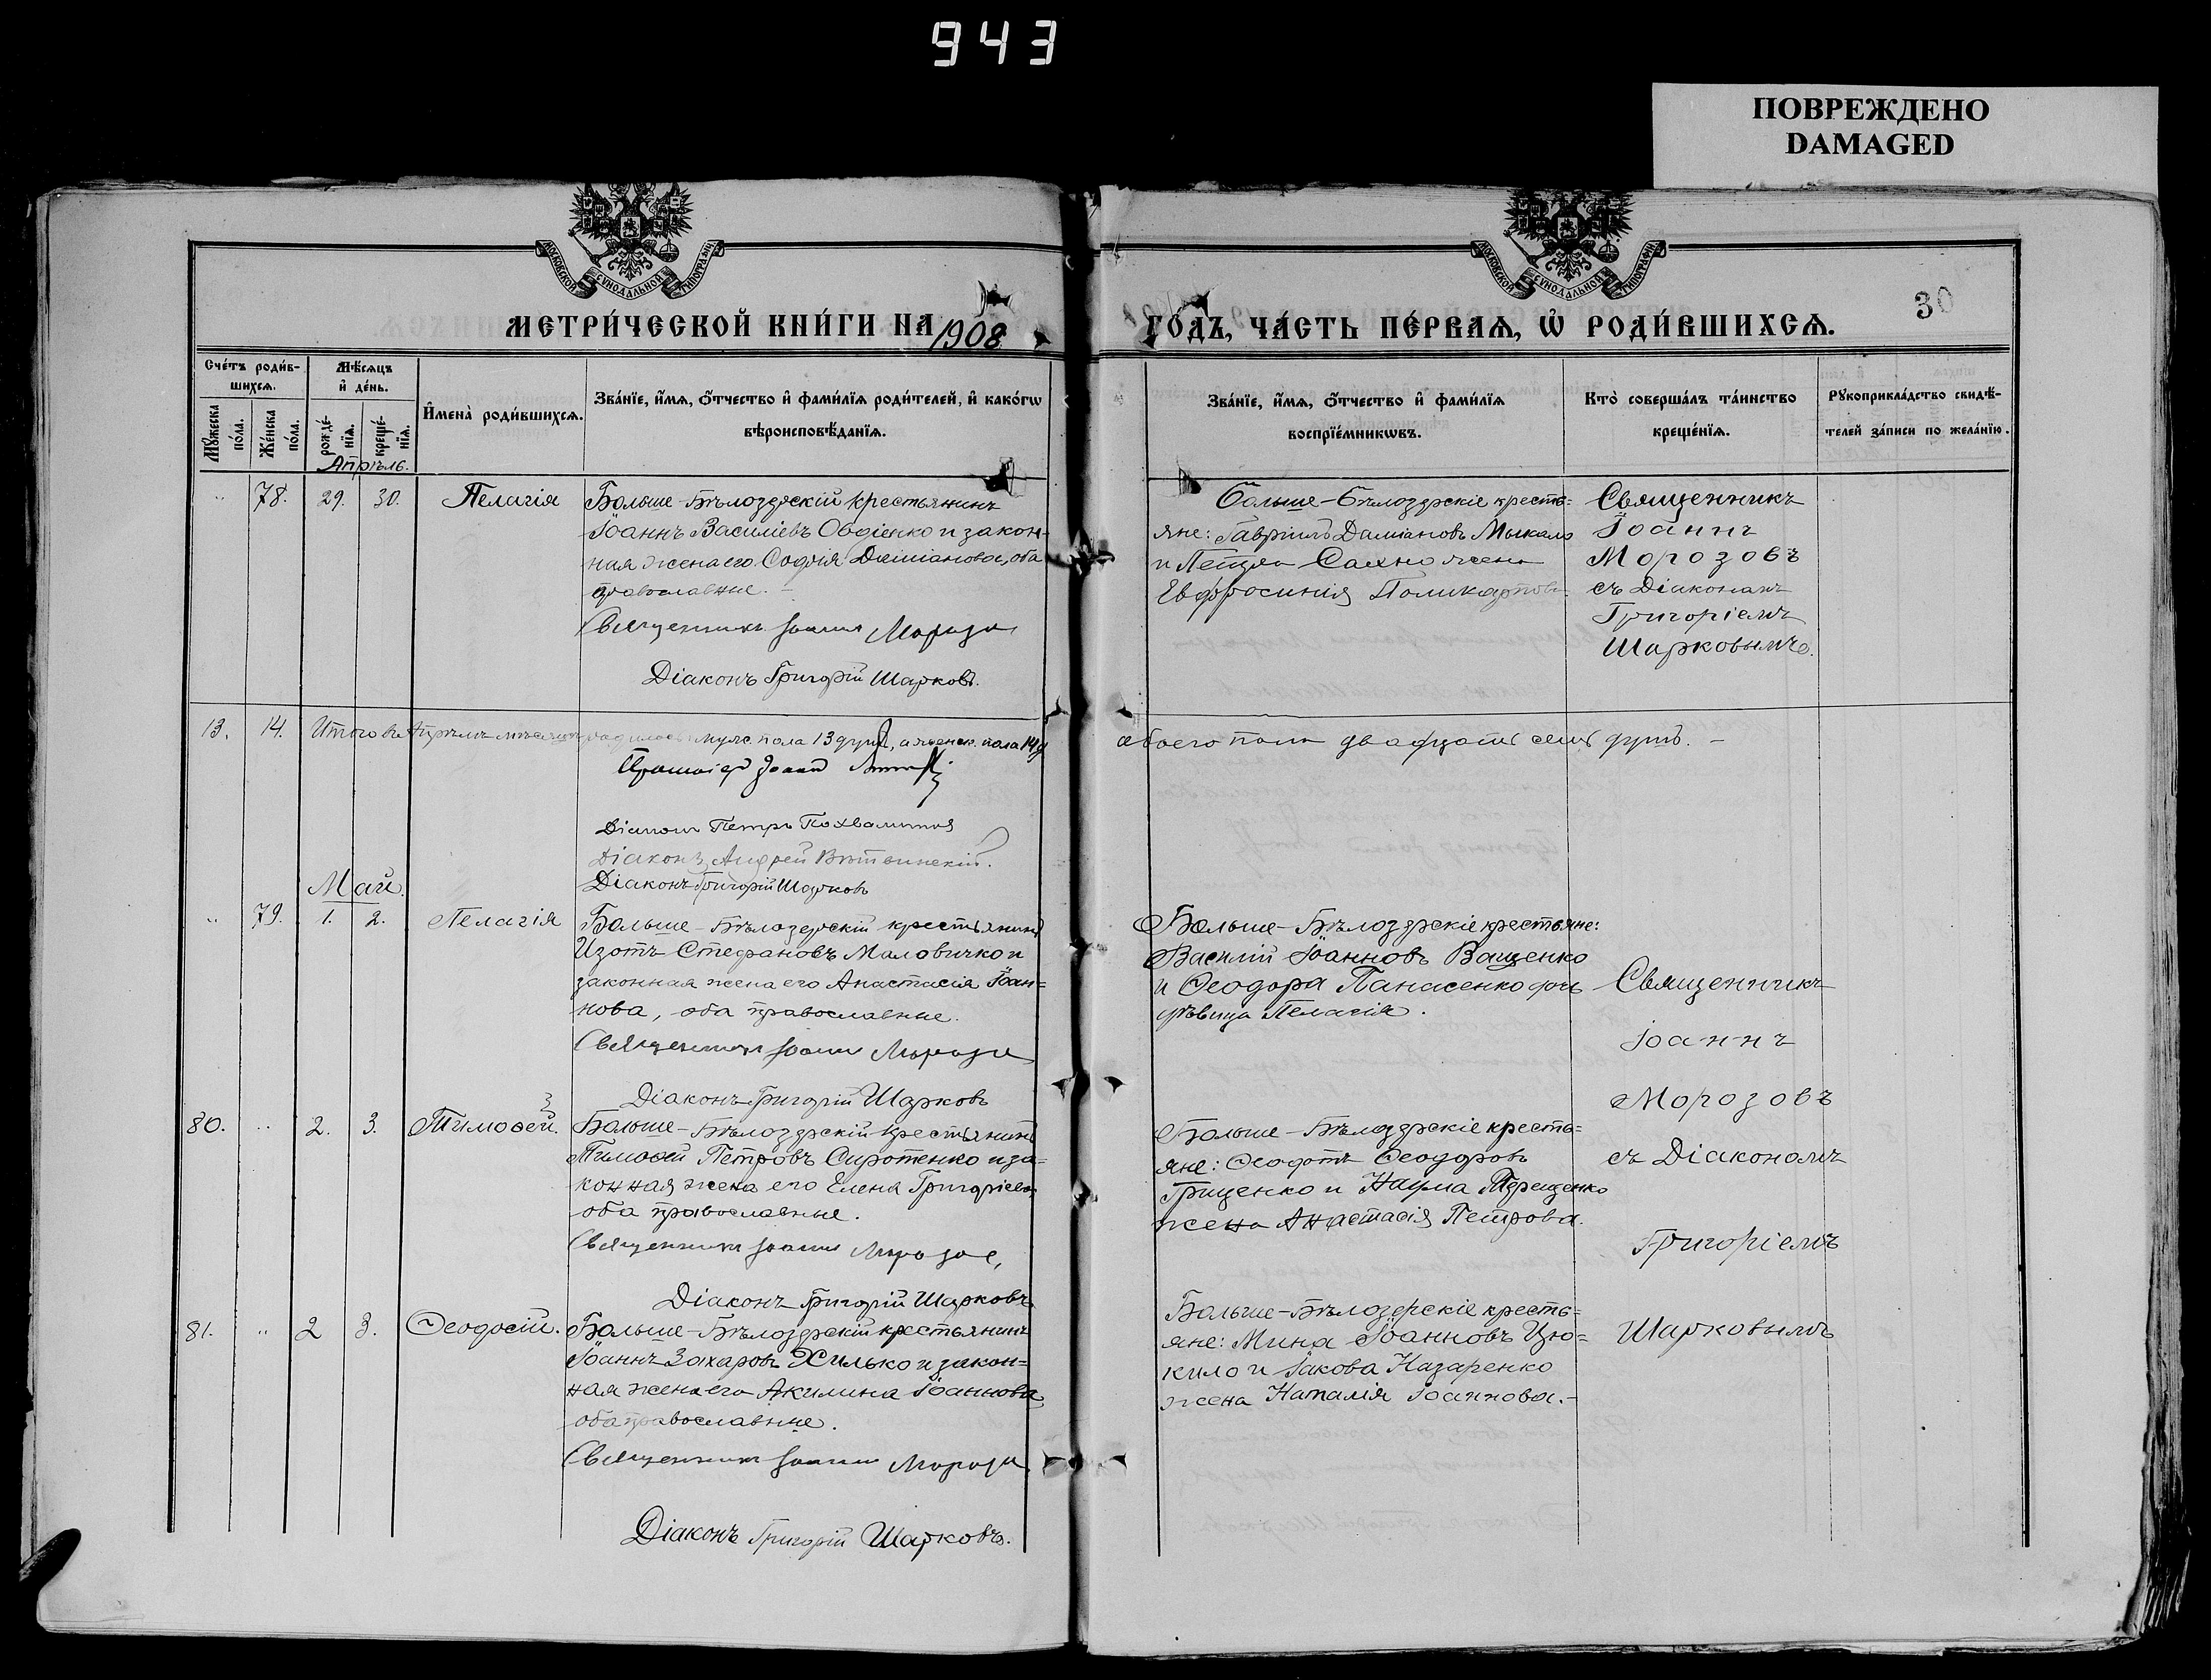 943
ПОВРЕЖДЕНО
DAMAGED
МОСКОВСКОЙ СУНОДАЛЬНОЙ ТИПОГРАФІИ
МОСКОВСКОЙ СУНОДАЛЬНОЙ ТИПОГРАФІИ
30
МЕТРИ́ЧЕСКОЙ КНИ́ГИ НА 1908
ГО́ДЪ, ЧА́СТЬ ПЕ́РВАѦ, Ѡ҆ РОДИ́ВШИХСѦ.
Сче́тъ роди́в-
шихсѧ.
Мꙋ́жеска по́ла.
Же́нска по́ла.
Мѣ́сѧцъ
и҆ де́нь.
рожде́-
нїѧ.
креще́-
нїѧ.
И҆мена̀ роди́вшихсѧ.
Зва́нїе, и҆́мѧ, ѻ҆́тчество и҆ фами́лїѧ роди́телей, и҆ како́гѡ
вѣроисповѣ́данїѧ.
Зва́нїе, и҆́мѧ, ѻ҆́тчество и҆ фами́лїѧ
воспрїе́мникѡвъ.
Кто̀ соверша́лъ та́инство
креще́нїѧ.
Рꙋкоприкла́дство свидѣ́-
телей за́писи по жела́нїю.
Апрѣль.
" 78. 29. 30. Пелагія
Больше-Бѣлозерскій крестьянинъ
Іоаннъ Василіевъ Овдіенко и закон-
ная жена его София Даміанова, оба
православные.
Священникъ Іоаннъ Морозов
Діаконъ Григорій Шарковъ.
Больше-Бѣлозерскіе кресть=
яне: Гавріилъ Даміановъ Мыкало
и Петра Сахно жена
Евфросинія Поликарпова.
Священникъ
Іоаннъ
Морозовъ
съ Діакономъ
Григоріемъ
Шарковымъ.
13. 14. Итого въ Апрѣлѣ мѣсяцѣ родилось муж. пола 13 душъ, а женск. пола 14 д
обоего пола двадцать семь душъ. –
Протоіерей Іоаннъ
Діаконъ Петръ
Діаконъ Андрей
Діаконъ Григорій Шарковъ
Май.
" 79. 1. 2. Пелагія
Больше-Бѣлозерскій крестьянинъ
Изотъ Стефановъ Маловичко и
законная жена его Анастасія Іоан=
нова, оба православные.
Священникъ Іоаннъ Морозов
Діаконъ Григорій Шарковъ
Больше-Бѣлозерскіе крестьяне:
Василій Іоанновъ Ващенко
и Ѳеодора Панасенко дочь
дѣвица Пелагія.
Священникъ
Іоаннъ
Морозовъ
съ Діакономъ
Григоріемъ
Шарковымъ
80. " 2. 3. Тимоѳей.
Больше-Бѣлозерскій крестьянинъ
Тимоѳей Петровъ Сиротенко и за=
конная жена его Елена Григоріева
оба православные.
Священникъ Іоаннъ Морозов
Діаконъ Григорій Шарковъ
Больше-Бѣлозерскіе кресть=
яне: Ѳеодотъ Ѳеодоровъ
Гриценко и Наума Терещенко
жена Анастасія Петрова.
81. " 2 3. Ѳеодосій.
Больше-Бѣлозерскій крестьянинъ
Іоаннъ Захаровъ Хилько и закон=
ная жена его Акилина Іоаннова
оба православные.
Священникъ Іоаннъ Морозов
Діаконъ Григорій Шарковъ.
Больше-Бѣлозерскіе кресть=
яне: Мина Іоанновъ Цю=
кило и Іакова Назаренко
жена Наталія Іоаннова.–